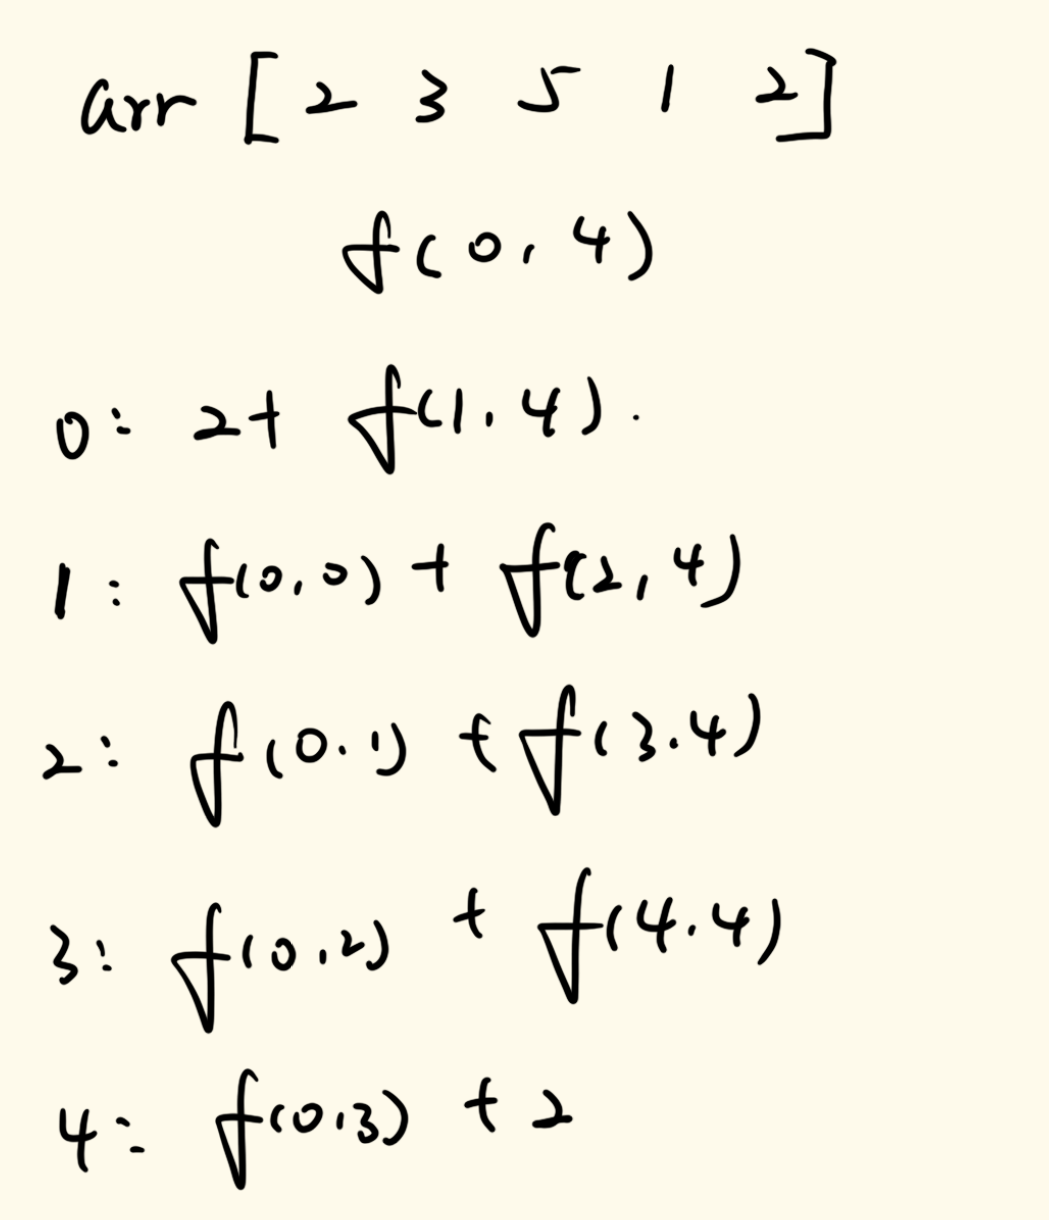 arr [ 2 3 5 1 2 ]
f(0, 4)
0: 2+ f(1.4).
1: f(0,0) + f(2,4)
2: f(0.1) + f(3.4)
3: f(0,2) + f(4.4)
4: f(0.3) + 2